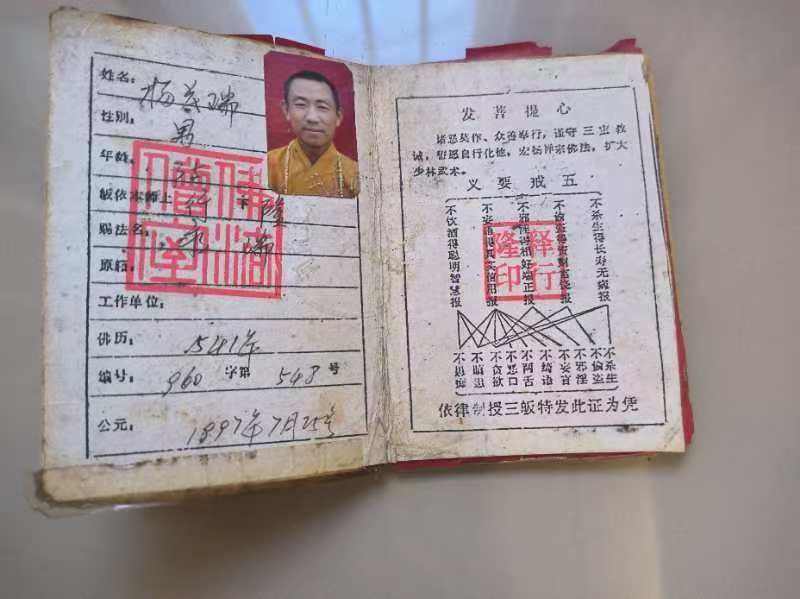 姓名：杨茂瑞
性别：男
年龄：
皈依本师上行下隆
赐法名：
原籍：
工作单位：
佛历：1541年
编号：960字第548号
公元：1997年7月25号
发菩提心
诸恶莫作、众善奉行，谨守三宝教
诫，誓愿自行化他，宏扬禅宗佛法，扩大
少林武术。
五戒要义
不杀生得长寿无病报
不偷盗得资财富饶报
不邪淫得相好端正报
不妄语得真实信用报
不饮酒得聪明智慧报
不杀生
不偷盗
不邪淫
不妄言
不绮语
不两舌
不恶口
不贪欲
不瞋恚
不愚痴
依律制授三皈特发此证为凭
释行
隆印